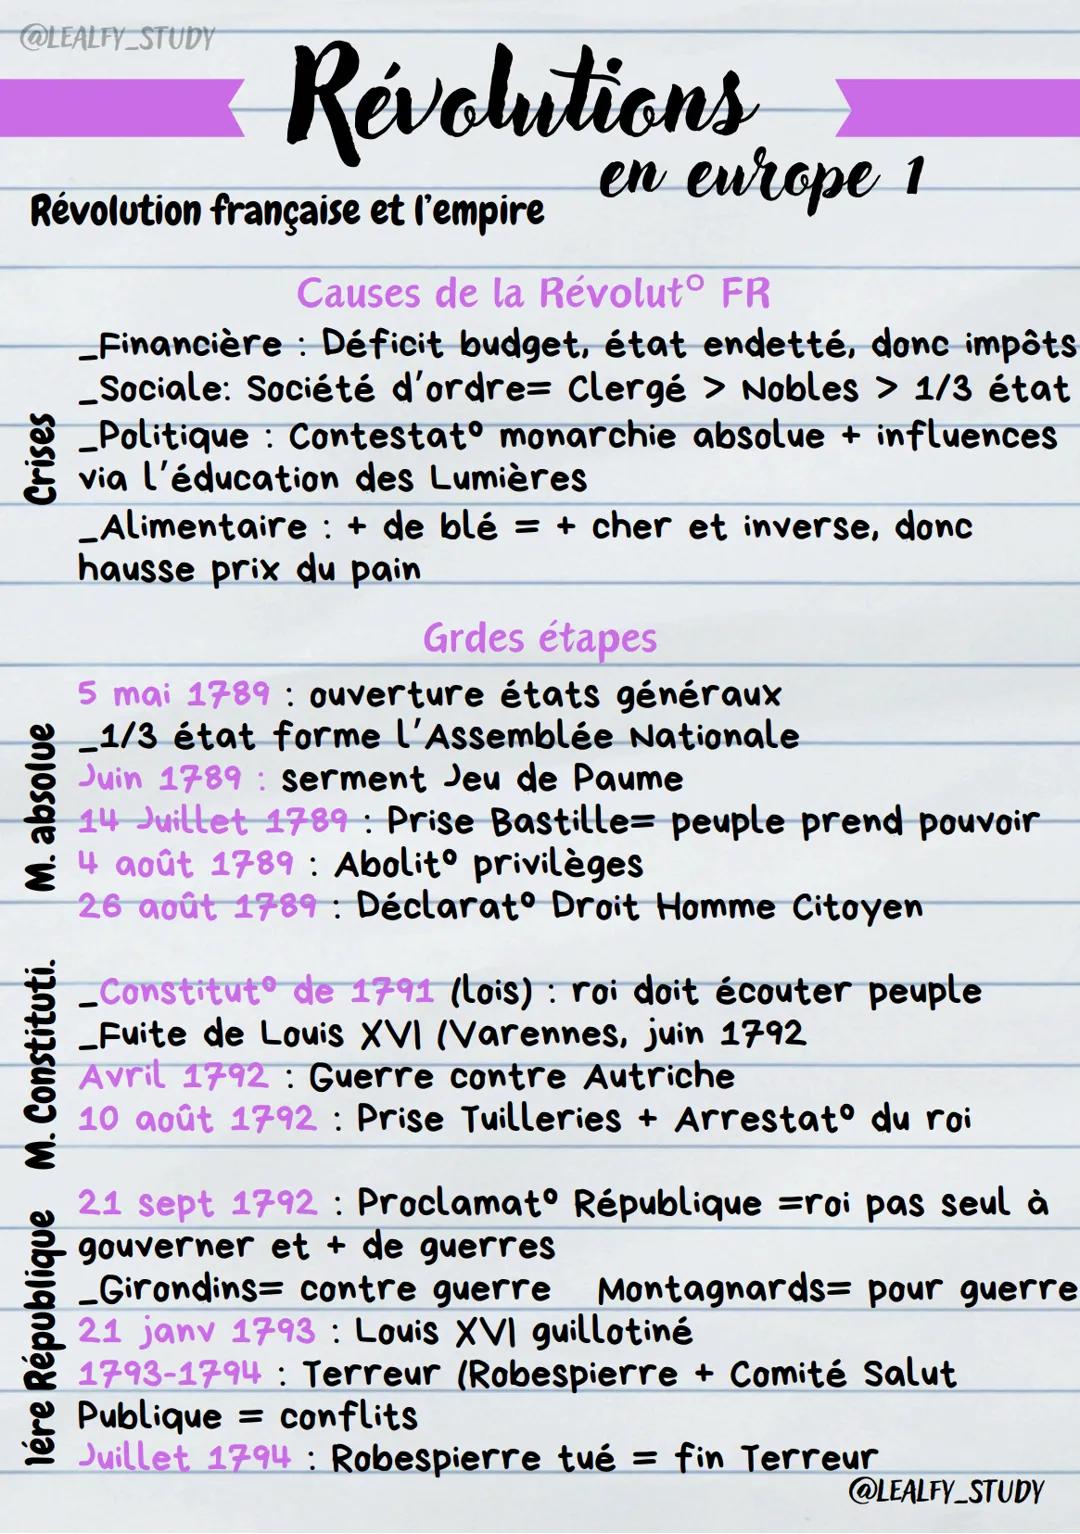 @LEALFY_STUDY
Révolutions
en europe 1
Révolution française et l'empire
Causes de la Révolut° FR
Crises
_Financière : Déficit budget, état endetté, donc impôts
_Sociale: Société d'ordre= Clergé > Nobles > 1/3 état
_Politique : Contestat° monarchie absolue + influences
via l'éducation des Lumières
_Alimentaire : + de blé = + cher et inverse, donc
hausse prix du pain
Grdes étapes
M. absolue
5 mai 1789 : ouverture états généraux
_1/3 état forme l'Assemblée Nationale
Juin 1789 : serment Jeu de Paume
14 Juillet 1789 : Prise Bastille= peuple prend pouvoir
4 août 1789 : Abolit° privilèges
26 août 1789 : Déclarat° Droit Homme Citoyen
M. Constituti.
_Constitut° de 1791 (lois) : roi doit écouter peuple
_Fuite de Louis XVI (Varennes, juin 1792
Avril 1792 : Guerre contre Autriche
10 août 1792 : Prise Tuilleries + Arrestat° du roi
1ére République
21 sept 1792 : Proclamat° République =roi pas seul à
gouverner et + de guerres
_Girondins= contre guerre Montagnards= pour guerre
21 janv 1793 : Louis XVI guillotiné
1793-1794 : Terreur (Robespierre + Comité Salut
Publique = conflits
Juillet 1794 : Robespierre tué = fin Terreur
@LEALFY_STUDY